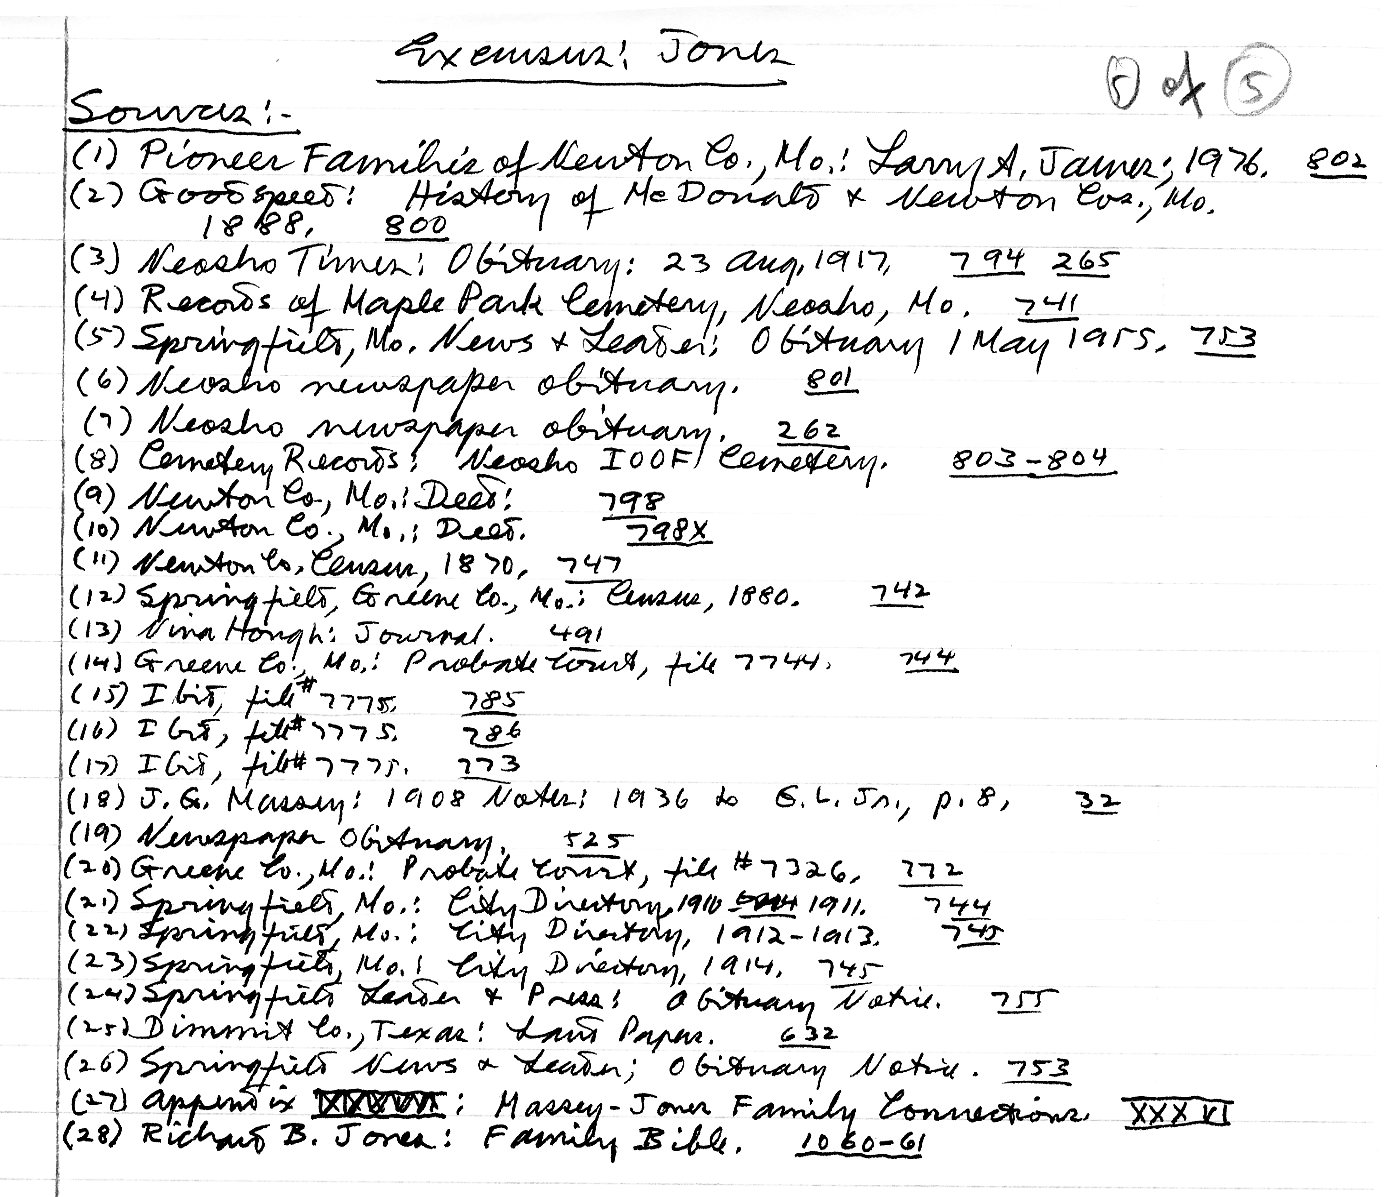 Excursus: Jones
5 of 5
Sources:-
(1) Pioneer Families of Newton Co., Mo.: Larry A. James; 1976. 802
(2) Goodspeed: History of McDonald & Newton Cos., Mo.
1888. 800
(3) Neosho Times: Obituary: 23 Aug, 1917, 794 265
(4) Records of Maple Park Cemetery, Neosho, Mo. 741
(5) Springfield, Mo. News & Leader: Obituary 1 May 1955. 753
(6) Neosho newspaper obituary. 801
(7) Neosho newspaper obituary. 262
(8) Cemetery Records: Neosho IOOF Cemetery. 803-804
(9) Newton Co., Mo.: Deed: 798
(10) Newton Co., Mo.: Deed. 798X
(11) Newton Co. Census, 1870, 747
(12) Springfield, Greene Co., Mo.: Census, 1880. 742
(13) Nina Hough: Journal. 491
(14) Greene Co., Mo.: Probate Court, file 7744. 744
(15) Ibid, file # 7775. 785
(16) Ibid, file # 7775. 786
(17) Ibid, file # 7775. 773
(18) J.G. Massey: 1908 Notes: 1936 to G.L. Jr., p. 8, 32
(19) Newspaper Obituary. 525
(20) Greene Co., Mo.: Probate Court, file # 7326, 772
(21) Springfield, Mo.: City Directory, 1910 1911. 744
(22) Springfield, Mo.: City Directory, 1912-1913. 745
(23) Springfield, Mo.: City Directory, 1914. 745
(24) Springfield Leader & Press: Obituary Notice. 755
(25) Dimmit Co., Texas: Land Papers. 632
(26) Springfield News & Leader; Obituary Notice. 753
(27) Appendix : Massey-Jones Family Connections. XXXVI
(28) Richard B. Jones: Family Bible. 1060-61